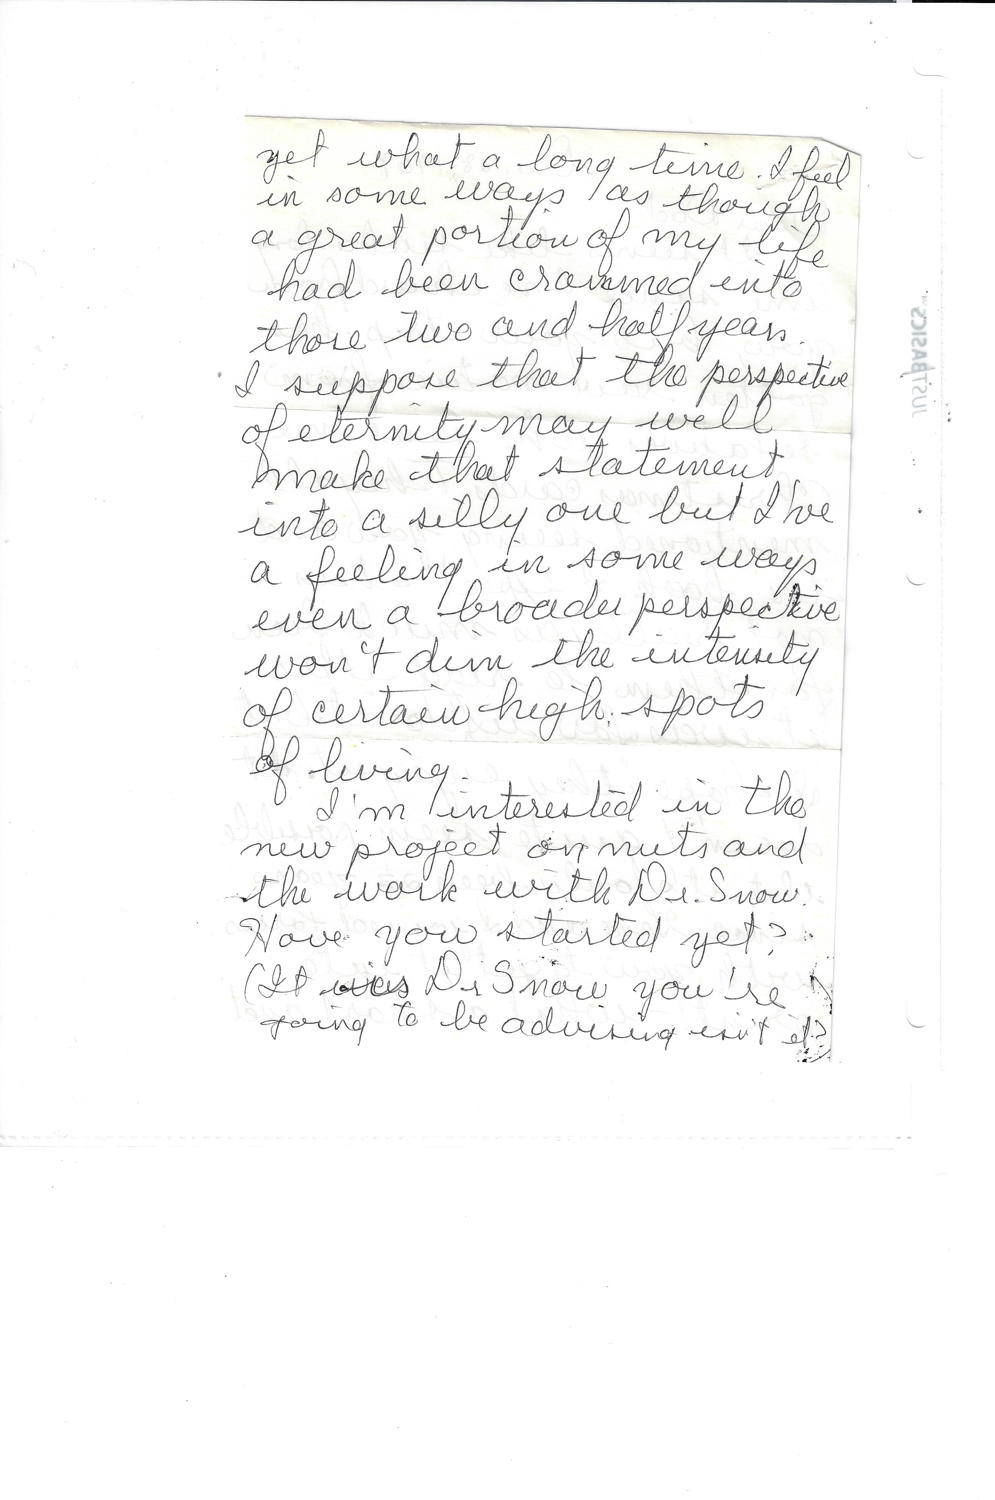 yet what a long time. I feel
in some ways as though
a great portion of my life
had been crammed into
those two and half years.
I suppose that the perspective
of eternity may well
make that statement
into a silly one but I've
a feeling in some ways
even a broader perspective
won't dim the intensity
of certain high spots
of living.
I'm interested in the
new project on nuts and
the work with Dr. Snow.
Have you started yet?
(It was Dr Snow you're
going to be advising isn't it?)
JUSTBASICS